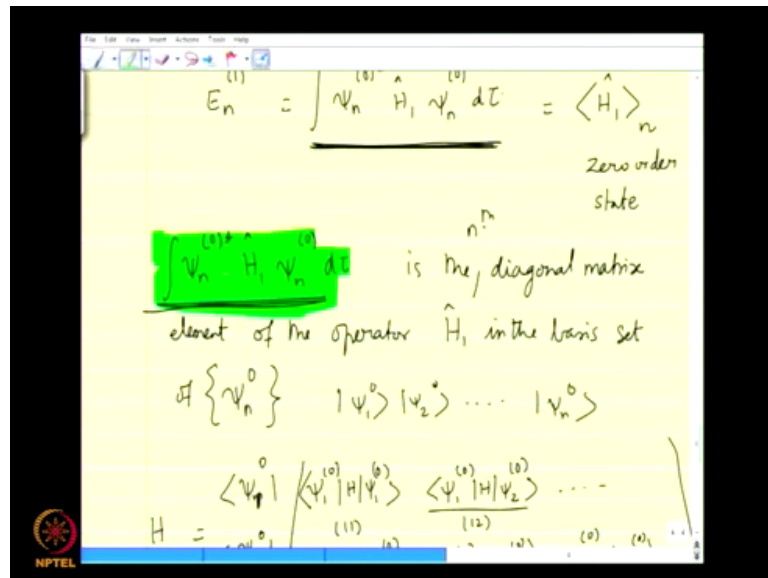 File Edit View Insert Actions Tools Help
E_n^{(1)} = ∫ ψ_n^{(0)*} Ĥ_1 ψ_n^{(0)} dτ = ⟨Ĥ_1⟩_n
zero order
state
∫ ψ_n^{(0)*} Ĥ_1 ψ_n^{(0)} dτ is the n^{th} diagonal matrix
element of the operator Ĥ_1 in the basis set
of {ψ_n^0} |ψ_1^0⟩ |ψ_2^0⟩ .... |ψ_n^0⟩
⟨ψ_1^0| ⟨ψ_1^{(0)}|H|ψ_1^{(0)}⟩ ⟨ψ_1^{(0)}|H|ψ_2^{(0)}⟩ ....
H = (11) (12)
NPTEL